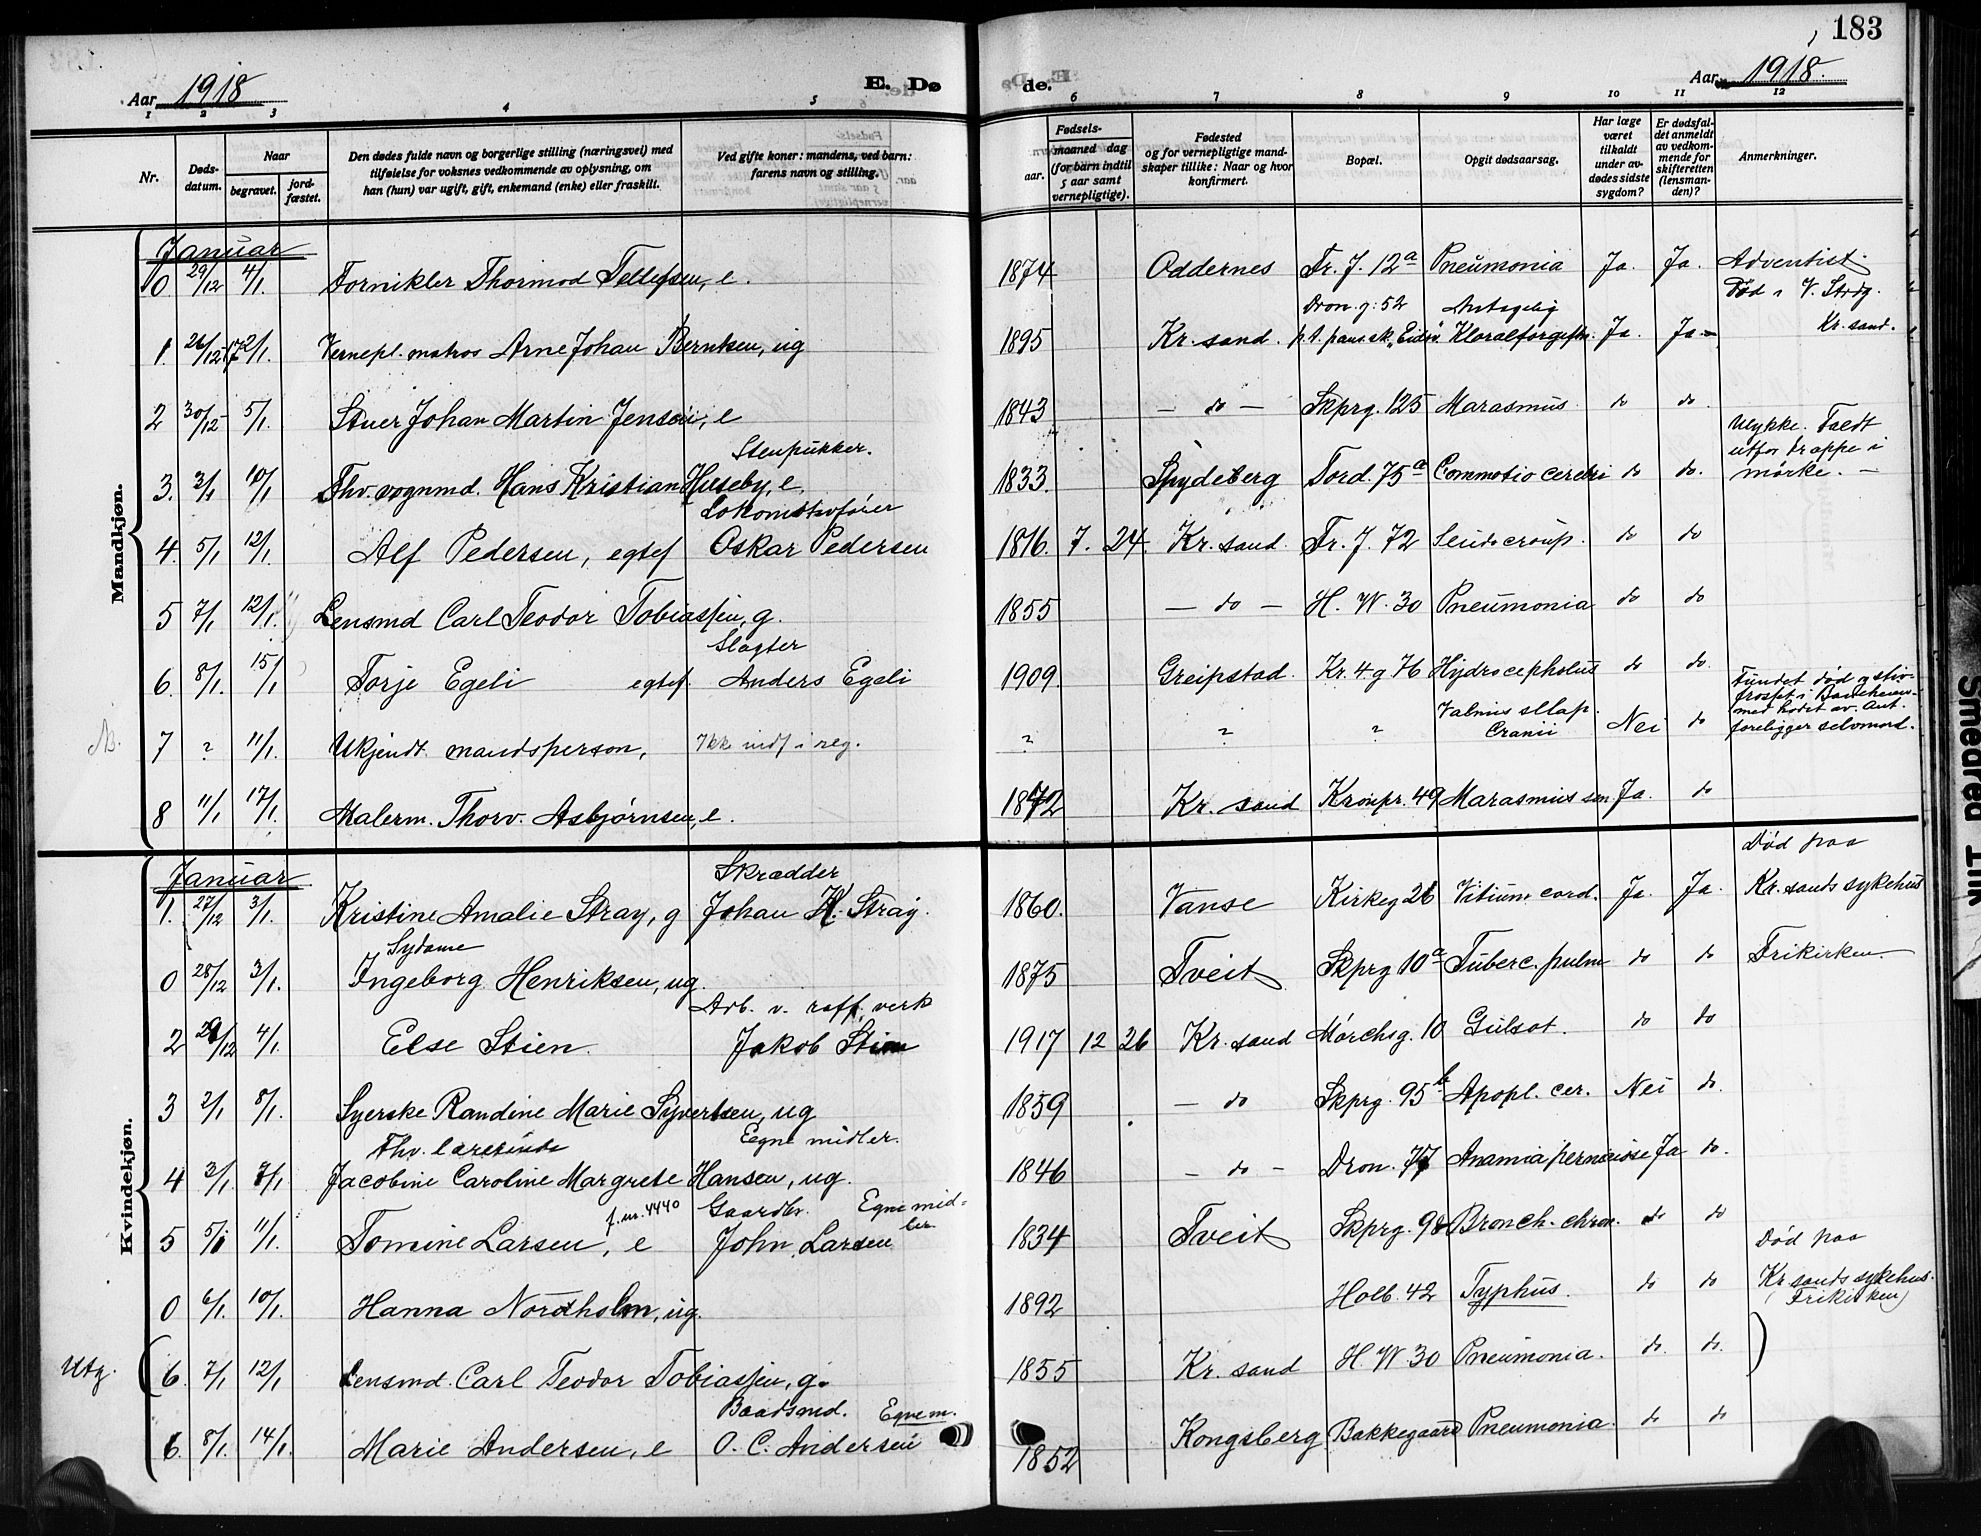 183
Aar 1918
E. Dø
de.
Aar 1918.
1 2 3 4 5 6 7 8 9 10 11 12
Nr.
Døds-
datum.
Naar
begravet.
jord-
fæstet.
Den dødes fulde navn og borgerlige stilling (næringsvei) med
tilføielse for voksnes vedkommende av oplysning, om
han (hun) var ugift, gift, enkemand (enke) eller fraskilt.
Ved gifte koner: mandens, ved barn:
farens navn og stilling.
Fødsels-
aar.
maaned dag
(for barn indtil
5 aar samt
vernepligtige).
Fødested
og for vernepligtige mand-
skaper tillike: Naar og hvor
konfirmert.
Bopæl.
Opgit dødsaarsag.
Har læge
været
tilkaldt
under av-
dødes sidste
sygdom?
Er dødsfal-
det anmeldt
av vedkom-
mende for
skifteretten
(lensman-
den)?
Anmerkninger.
Mandkjøn.
Januar
0 29/12 4/1. Fornikler Thormod Tellefsen, e. 1874 Oddernes Fr. J. 12a Pneumonia Ja. Ja. Adventist.
Død i V. Strdg.
Kr. sand.
Dron. g. 52 Antagelig
1. 26/12-17 2/1. Vernepl. matros Arne Johan Berntsen, ug 1895 Kr. sand. p.t. pans.sk. "Eidsv. Kloralforgiftn. Ja. Ja
2 30/12- 5/1. Stuer Johan Martin Jensen, e 1843 - do - Skprg. 125 Marasmus. do do.
Stenpukker.
Ulykke. Faldt
utfor trappe i
mørke. -
3. 3/1 10/1 Fhv. vognmd. Hans Kristian Huseby, e. 1833. Spydeberg Tord. 75a Commotio cerebri do do.
Lokomotivfører
4. 5/1 12/1. Alf Pedersen, egtef Oskar Pedersen 1816. 7. 24. Kr. sand. Fr. J. 72 Seudocroup. do do
5 7/1 12/1. Lensmd Carl Teodor Tobiassen, g. 1855 - do - H. W. 30 Pneumonia do do
Slagter
6. 8/1. 15/1 Torje Egeli egtef. Anders Egeli 1909. Greipstad. Kr. 4 g 76 Hydrocephalus do do.
Fundet død og stiv-
frosset i Baneheien
med hodet av. Ant.
foreligger selvmord.
NB. 7 ? 11/1. Ukjendt mandsperson, Ikke indf i reg. ? ? ? Cranii Nei do
8 11/1. 17/1. Malerm. Thorv. Asbjørnsen, e. 1842 Kr. sand Kronpr. 49 Marasmus sen Ja. do
Kvindekjøn.
Januar
Skrædder
Død paa
Kr. sands sykehus
1. 27/12 3/1. Kristine Amalie Stray, g Johan K. Stray. 1860. Vanse Kirkeg 26 Vitium cord. Ja. Ja.
Sydame
0 28/12 3/1. Ingeborg Henriksen, ug. 1875 Tveit Skprg 10a Tuberc. pulm do do Frikirken.
Arb. v. raff. verk
2 29/12 4/1. Else Stien. Jakob Stien 1917 12 26 Kr. sand Mørchsg. 10 Gulsot. do do
3 2/1 8/1. Syerske Randine Marie Syvertsen, ug 1859 - do Skprg. 95b Apopl. cer. Nei do.
Fhv. lærerinde Egne midler.
4 3/1. 7/1. Jacobine Caroline Margrete Hansen, ug. 1846 - do - Dron. 77 Anamia perniciose Ja do.
f. nr. 4440 Gaardbr. Egne mid-
ler
5 5/1 11/1. Tomine Larsen, e John Larsen 1834 Tveit Skprg. 98 Bronch. chron. do do
Død paa
Kr sands sykehus.
(Frikirken)
0 6/1. 10/1. Hanna Nordholm, ug. 1892 Holb. 42 Typhus. do do
Utg. (6. 7/1 12/1 Lensmd. Carl Teodor Tobiassen, g. 1855 Kr. sand H. W 30 Pneumonia. do. do. )
Baadsmd. Egne m.
6. 8/1. 14/1. Marie Andersen, e O. C. Andersen 1852 Kongsberg Bakkegaard Pneumonia. do do
Smedred Link